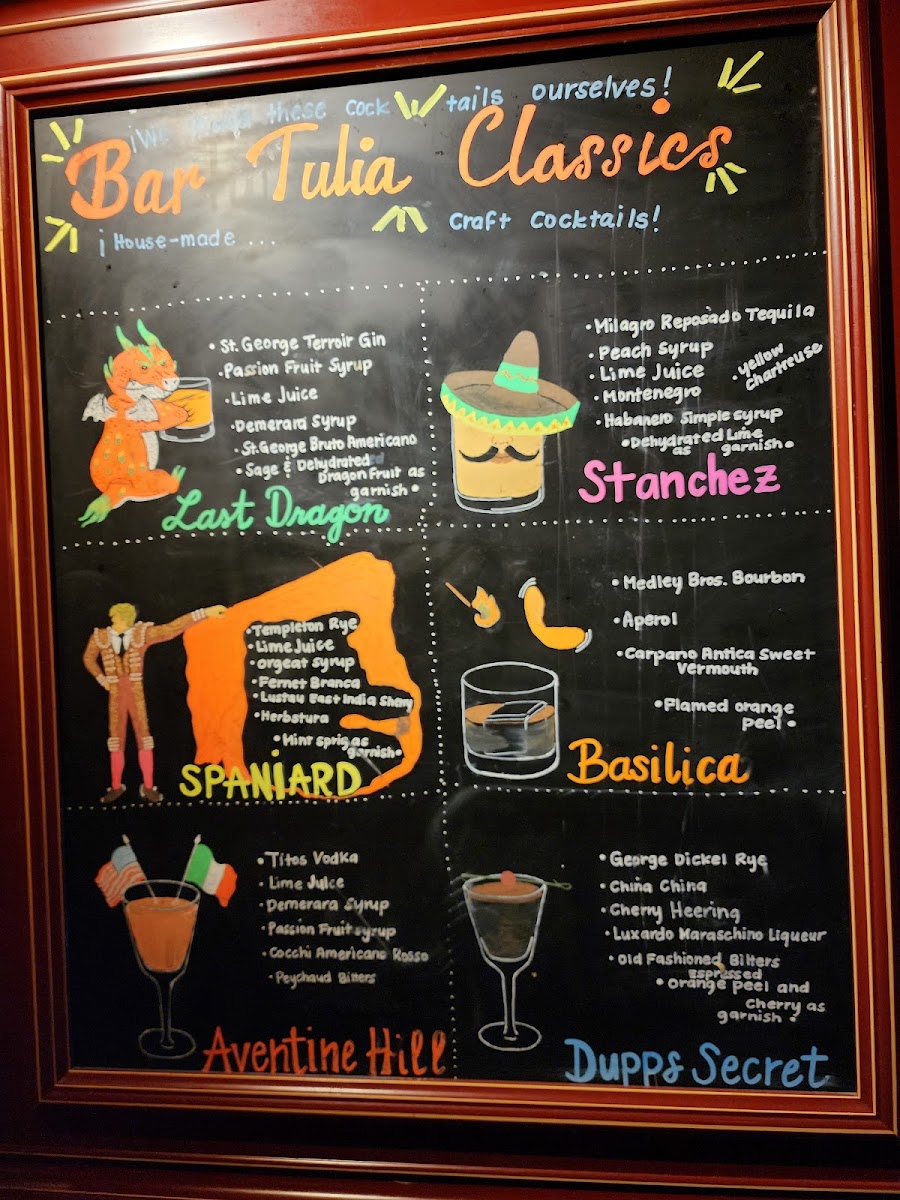 ¡We made these cocktails ourselves!
Bar Tulia Classics
¡House-made ... craft cocktails!
• St. George Terroir Gin
• Passion Fruit Syrup
• Lime Juice
• Demerara Syrup
• St. George Bruto Americano
• Sage & Dehydrated
Dragon Fruit as
garnish •
Last Dragon
• Milagro Reposado Tequila
• Peach Syrup
• Lime Juice
• Yellow
Chartreuse
• Montenegro
• Habanero Simple Syrup
• Dehydrated Lime
as garnish •
Stanchez
• Templeton Rye
• Lime Juice
• orgeat syrup
• Fernet Branca
• Lustau East India Sherry
• Herbstura
• Mint sprig as
garnish •
SPANIARD
• Medley Bros. Bourbon
• Aperol
• Carpano Antica Sweet
Vermouth
• Flamed orange
peel •
Basilica
• Titos Vodka
• Lime Juice
• Demerara Syrup
• Passion Fruit syrup
• Cocchi Americano Rosso
• Peychaud Bitters
Aventine Hill
• George Dickel Rye
• China China
• Cherry Heering
• Luxardo Maraschino Liqueur
• Old Fashioned Bitters
espressed
• orange peel and
cherry as
garnish •
Dupps Secret